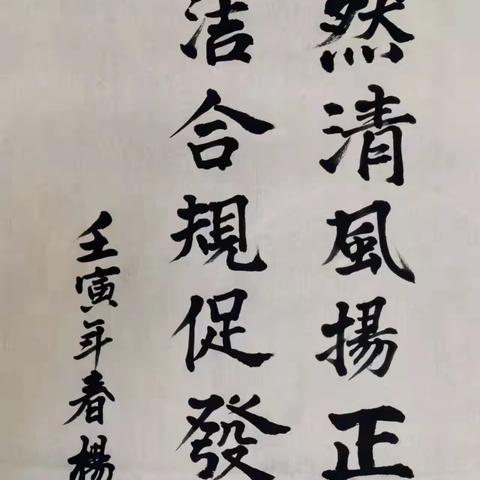 然清风揚正
洁合規促發
壬寅年春楊